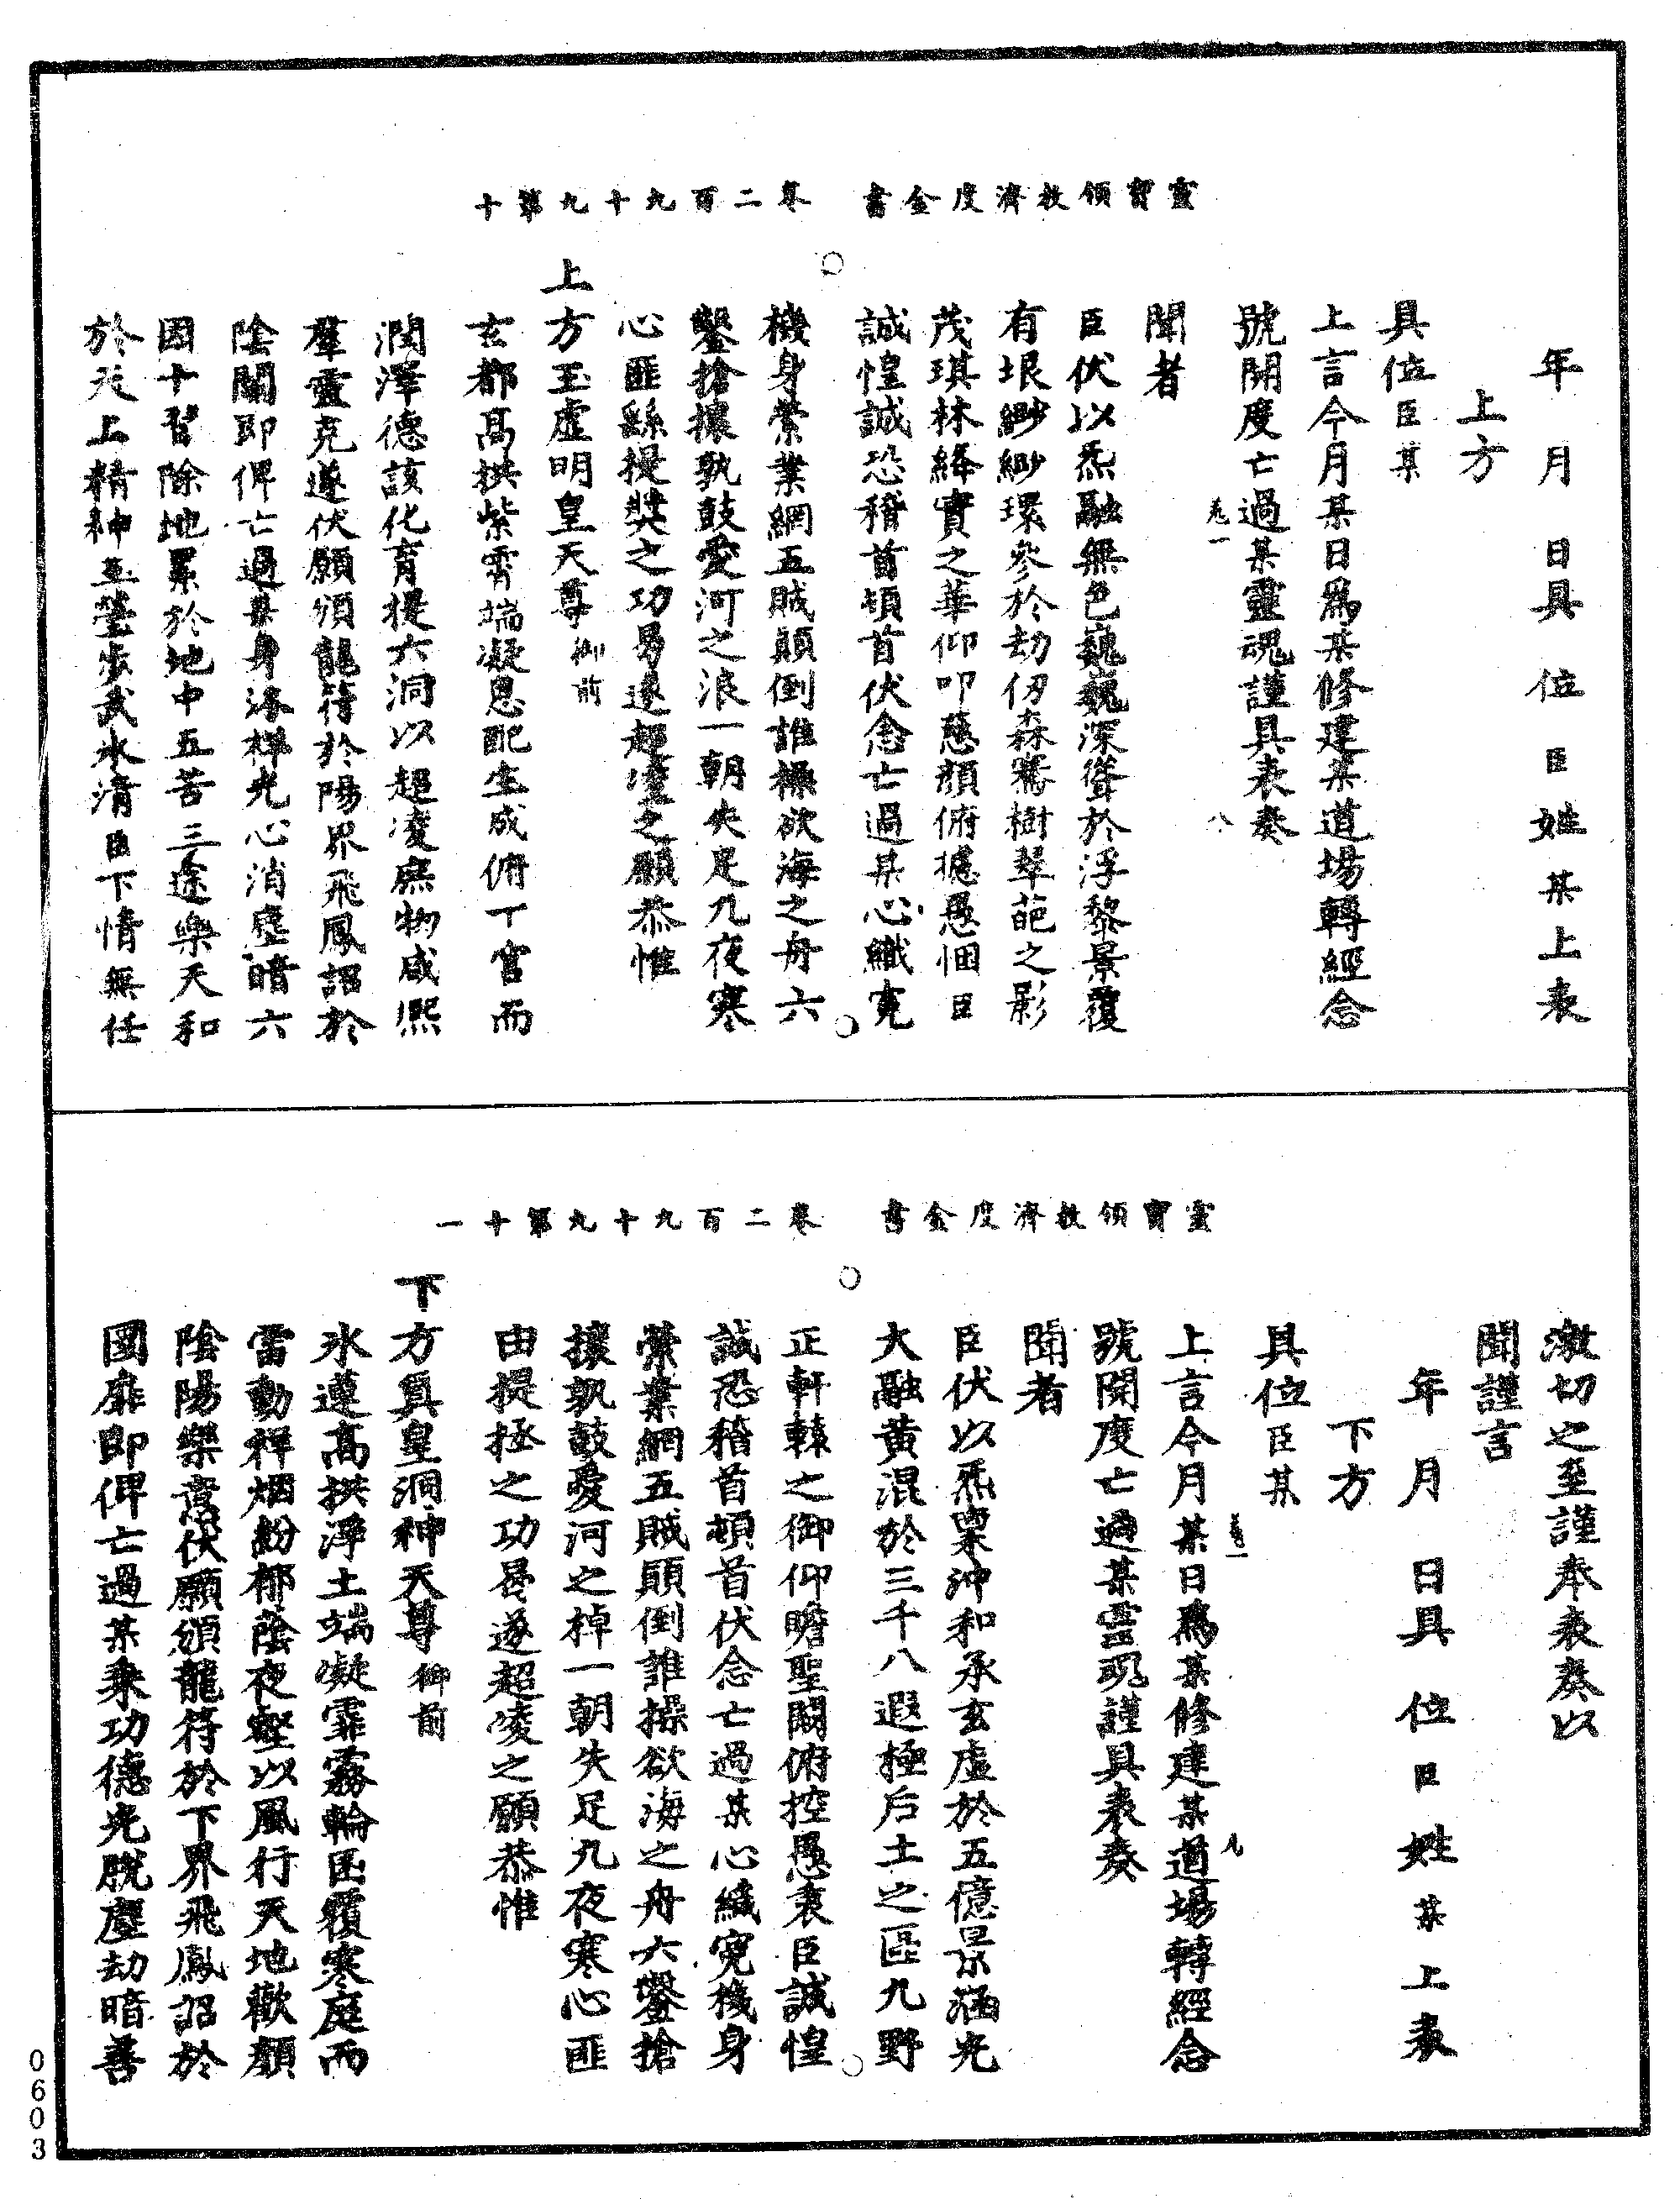 靈寶領教濟度金書　卷二百九十九第十
年　月　日具　位臣姓某上表
上方
具位臣某
上言今月某日爲某修建某道場轉經念
號開度亡過某靈魂謹具表奏
聞者
臣伏以炁融無色巍巍深聳於浮黎景覆
有垠緲緲環參於劫仞森騫樹翠葩之影
茂琪林絳實之華仰叩慈顏俯攄愚悃臣
誠惶誠恐稽首頓首伏念亡過某心纖寃
機身縈業網五賊顛倒誰操欲海之舟六
鑿搶攘孰鼓愛河之浪一朝失足九夜寒
心匪繇提奬之功易遂超凌之願恭惟
上方玉虛明皇天尊御前
玄都高拱紫霄端凝恩配生成俯丁官而
潤澤德該化育提六洞以超凌庶物咸熙
羣靈克遂伏願頒龍符於陽界飛鳳詔於
陰關即俾亡過某身沐祥光心消塵暗六
因十習除地累於地中五苦三途樂天和
於天上精神玉瑩步武冰清臣下情無任
靈寶領教濟度金書　卷二百九十九第十一
激切之至謹奉表奏以
聞謹言
年　月　日具　位臣姓某上表
下方
具位臣某
上言今月某日爲某修建某道場轉經念
號開度亡過某靈魂謹具表奏
聞者
臣伏以炁稟沖和承玄虛於五億景涵光
大融黃混於三千八遐極后土之區九野
正軒轅之御仰瞻聖闕俯控愚衷臣誠惶
誠恐稽首頓首伏念亡過某心纖寃機身
縈業網五賊顛倒誰操欲海之舟六鑿搶
攘孰鼓愛河之棹一朝失足九夜寒心匪
由提拯之功曷遂超凌之願恭惟
下方眞皇洞神天尊御前
水遵高拱淨土端凝霏霧輪囷覆寒庭而
雷動祥烟紛郁蔭夜壑以風行天地歡顏
陰陽樂意伏願頒龍符於下界飛鳳詔於
圜扉即俾亡過某乘功德光脫塵劫暗善
0603